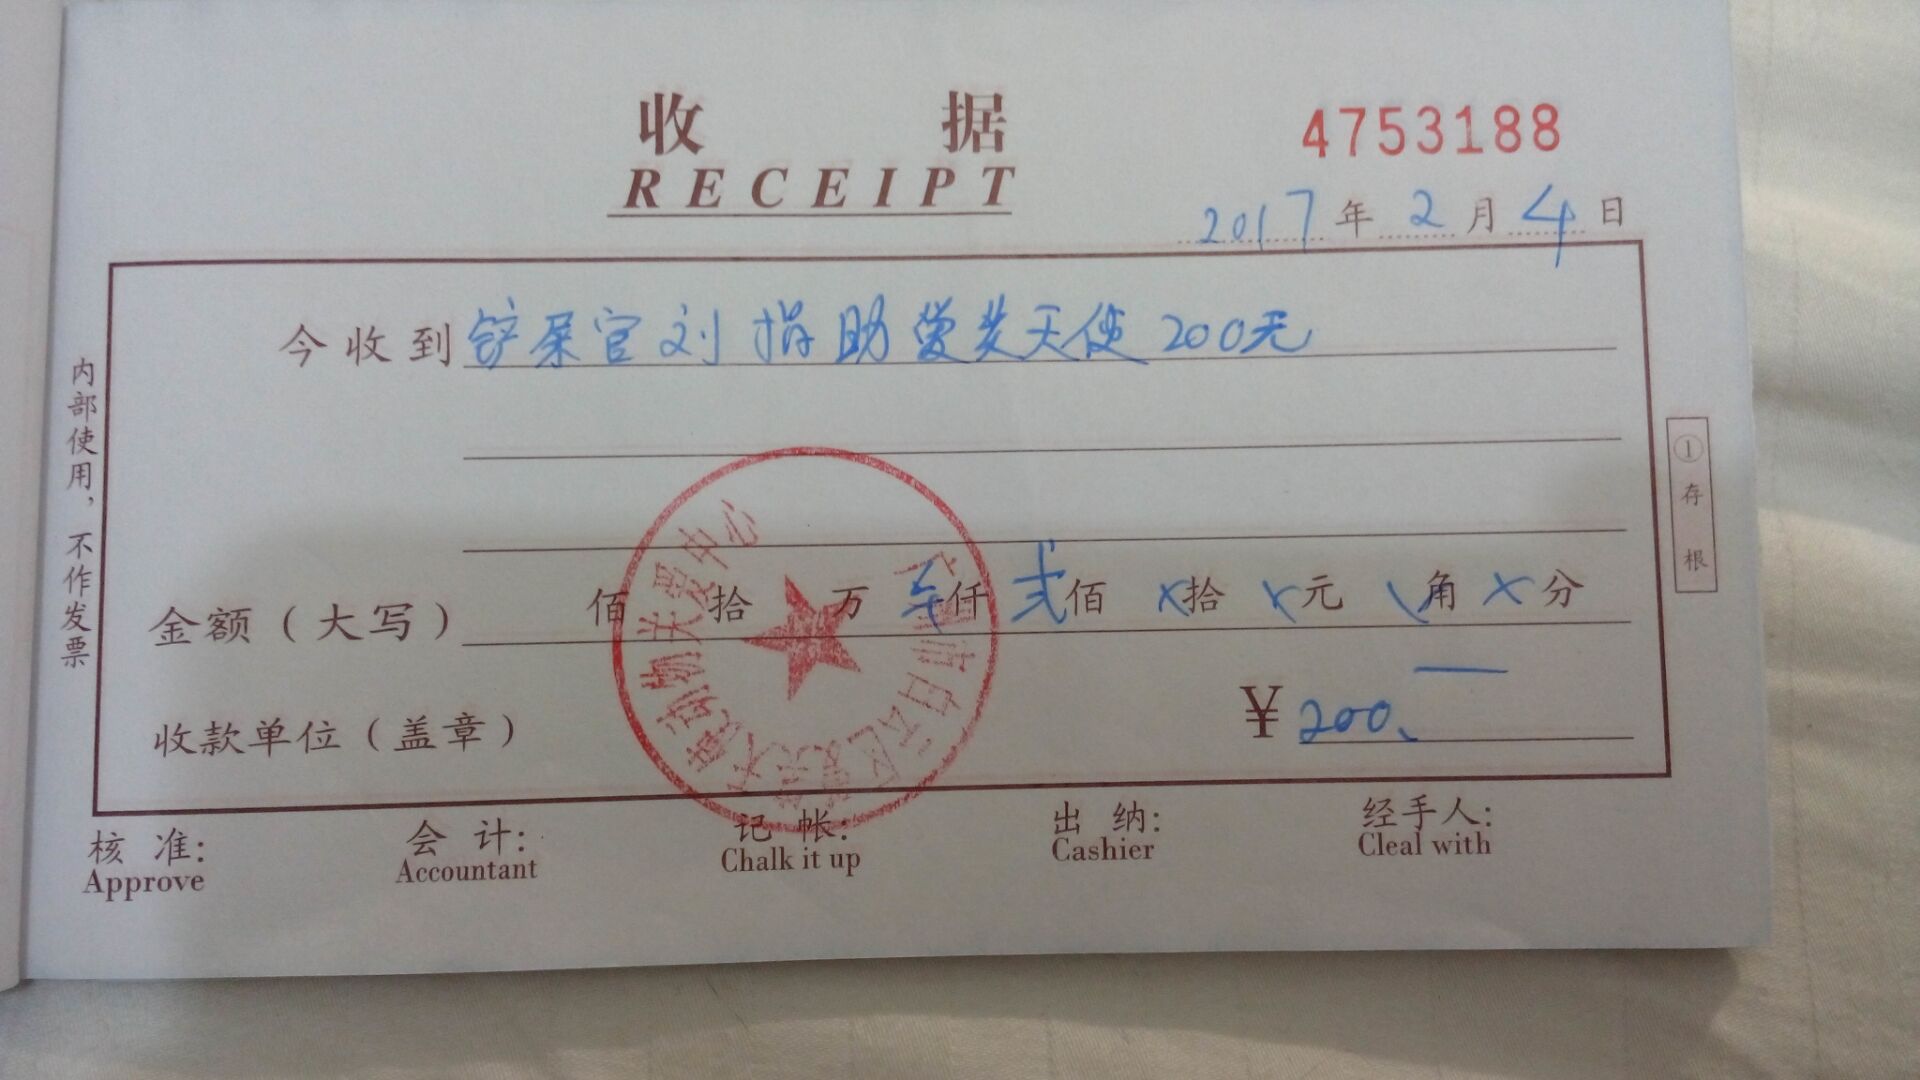 收 据
RECEIPT
4753188
2017年2月4日
今收到 铲屎官刘 捐助爱益天使200元
内部使用，不作发票
①存根
金额（大写） 佰 拾 万 仟 弍佰 ×拾 ×元 \角 ×分
收款单位（盖章）
¥ 200、
核 准: 会 计: 记 帐: 出 纳: 经手人:
Approve Accountant Chalk it up Cashier Cleal with
动物关爱中心
市白云区